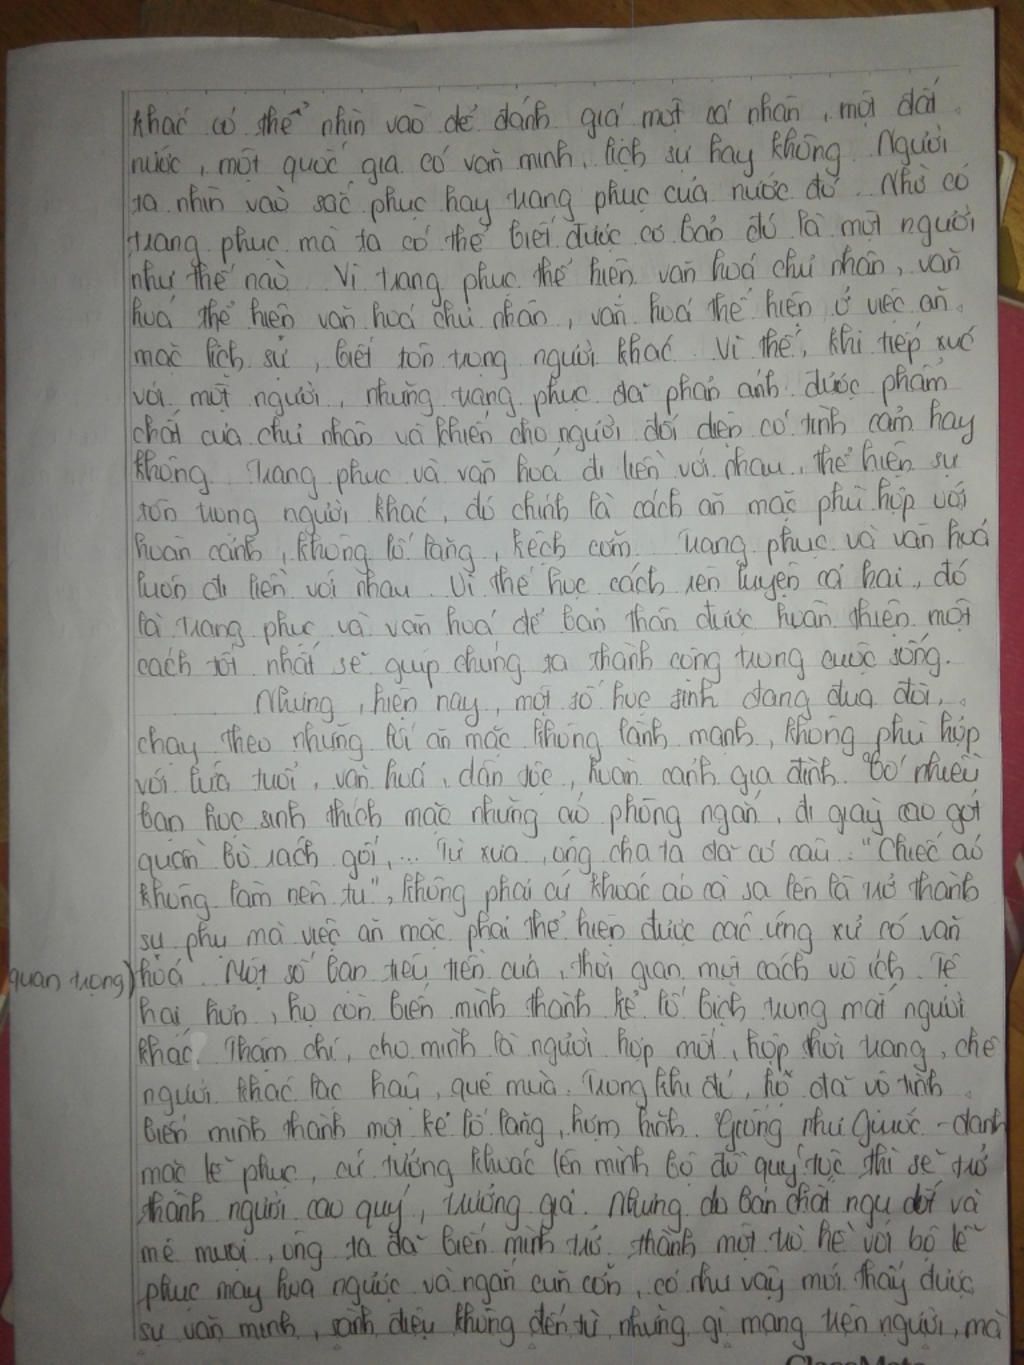 khác có thể nhìn vào để đánh giá một cá nhân, một đất
nước, một quốc gia có văn minh, lịch sự hay không. Người
ta nhìn vào sắc phục hay trang phục của nước đó. Nhờ có
trang phục mà ta có thể biết được cơ bản đó là một người
như thế nào. Vì trang phục thể hiện văn hoá chủ nhân, văn
hoá thể hiện văn hoá chủ nhân, văn hoá thể hiện ở việc ăn
mặc lịch sử, biết tôn trọng người khác. Vì thế, khi tiếp xúc
với một người, những trang phục đã phản ánh được phẩm
chất của chủ nhân và khiến cho người đối diện có tình cảm hay
không. Trang phục và văn hoá đi liền với nhau, thể hiện sự
tôn trọng người khác, đó chính là cách ăn mặc phù hợp với
hoàn cảnh, không lố lăng, kệch cỡm. Trang phục và văn hoá
luôn đi liền với nhau. Vì thế học cách rèn luyện cả hai, đó
là trang phục và văn hoá để bản thân được hoàn thiện một
cách tốt nhất sẽ giúp chúng ta thành công trong cuộc sống.
Nhưng, hiện nay, một số học sinh đang đua đòi,
chạy theo những lối ăn mặc không lành mạnh, không phù hợp
với lứa tuổi, văn hoá, dân tộc, hoàn cảnh gia đình. Có nhiều
bạn học sinh thích mặc những áo phông ngắn, đi giày cao gót
quần bò rách gối,... Từ xưa, ông cha ta đã có câu: "Chiếc áo
không làm nên tu", không phải cứ khoác áo cà sa lên là trở thành
sư phụ mà việc ăn mặc phải thể hiện được các ứng xử có văn
quan trọng) hoá. Một số bạn tiêu tiền của, thời gian một cách vô ích. Tệ
hại hơn, họ còn biến mình thành kẻ lố bịch trong mắt người
khác. Thậm chí, cho mình là người hợp mới, hợp thời trang, chê
người khác lạc hậu, quê mùa. Trong khi đó, họ đã vô tình
biến mình thành một kẻ lố lăng, hợm hĩnh. Giống như Giuốc-đanh
mặc lễ phục, cứ tưởng khoác lên mình bộ đồ quý tộc thì sẽ trở
thành người cao quý, trưởng giả. Nhưng do bản chất ngu dốt và
mê muội, ông ta đã biến mình trở thành một trò hề với bộ lễ
phục may hoa ngược và ngắn cũn cỡn, có như vậy mới thấy được
sự văn minh, sành điệu không đến từ những gì mang trên người, mà